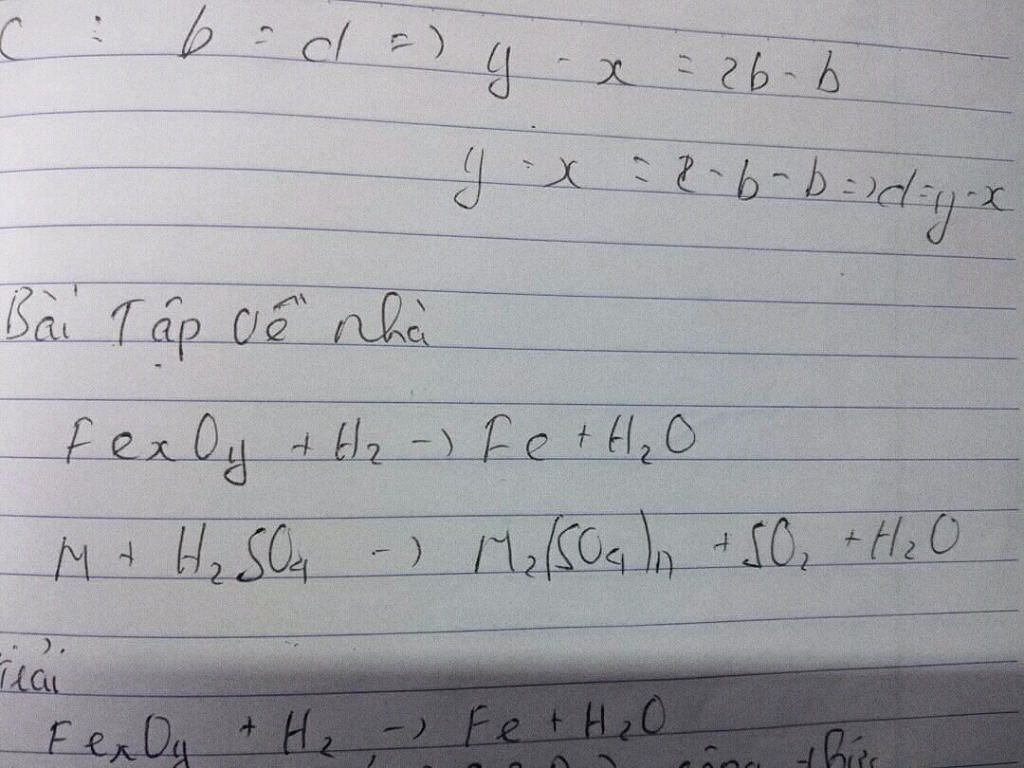 C : b = d => y - x = 2b - b
y - x = 2 - b - b => d = y - x
Bài Tập Về nhà
FexOy + H2 -> Fe + H2O
M + H2SO4 -> M2(SO4)n + SO2 + H2O
Giải
FexOy + H2 -> Fe + H2O
công thức